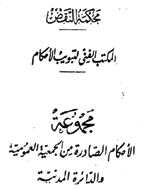 محكمة النقض
المكتب الفني لتبويب الأحكام
مجموعة
الأحكام الصادرة من الجمعية العمومية
والدائرة المدنية